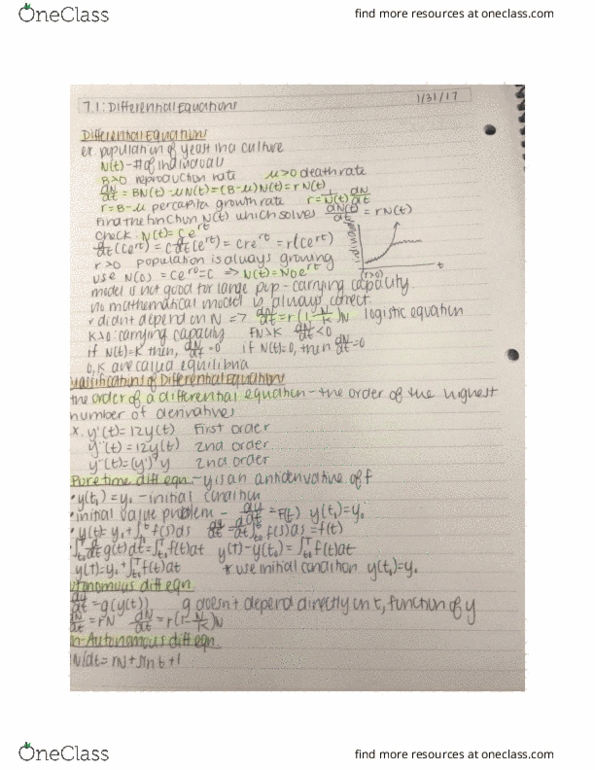 OneClass
find more resources at oneclass.com
7.1: Differential Equations 1/31/17
Differential Equations
ex. population of yeast in a culture
N(t) - # of individuals
B>0 reproduction rate μ>0 death rate
dN/dt = BN(t) - μN(t) = (B-μ)N(t) = rN(t)
r = B-μ per capita growth rate r = 1/N(t) dN/dt
Find the function N(t) which solves dN(t)/dt = rN(t)
Check: N(t) = Ce^rt
d/dt(Ce^rt) = C d/dt(e^rt) = Cre^rt = r(Ce^rt)
r>0 population is always growing
(r>0) t
use N(0) = Ce^r0 = C => N(t) = N0e^rt
model is not good for large pop - carrying capacity
no mathematical model is always correct.
r didn't depend on N => dN/dt = r(1-N/K)N logistic equation
K>0: carrying capacity N>K dN/dt<0
if N(t)=K then, dN/dt=0 if N(t)=0, then dN/dt=0
0, K are called equilibria
Classifications of Differential Equations
the order of a differential equation - the order of the highest
number of derivatives
x. y'(t) = 12y(t) First order
y''(t) = 12y(t) 2nd order
y''(t) = (y')² y 2nd order
Pure time diff eqn. - y is an antiderivative of f
• y(t₀) = y₀ - initial condition
• initial value problem - dy/dt = f(t) y(t₀) = y₀
• y(t) = y₀ + ∫ f(s)ds dy/dt = d/dt ∫ f(s)ds = f(t)
g(t)dt = ∫ f(t)dt y(T) - y(t₀) = ∫ f(t)dt
y(T) = y₀ + ∫ f(t)dt * use initial condition y(t₀) = y₀
utonomous diff eqn.
dy/dt = g(y(t)) g doesn't depend directly on t, function of y
dN/dt = rN dN/dt = r(1-N/K)N
n-Autonomous diff eqn.
N/dt = rN + sin t + 1
OneClass
find more resources at oneclass.com